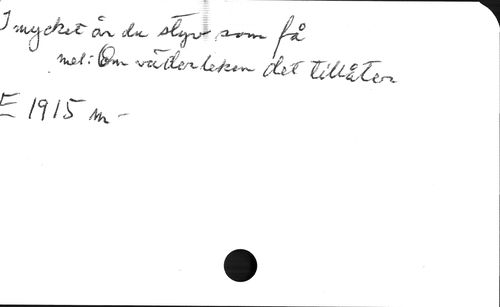 I mycket är du styv som få
mel: Om väderleken det tillåter
E 1915 m -